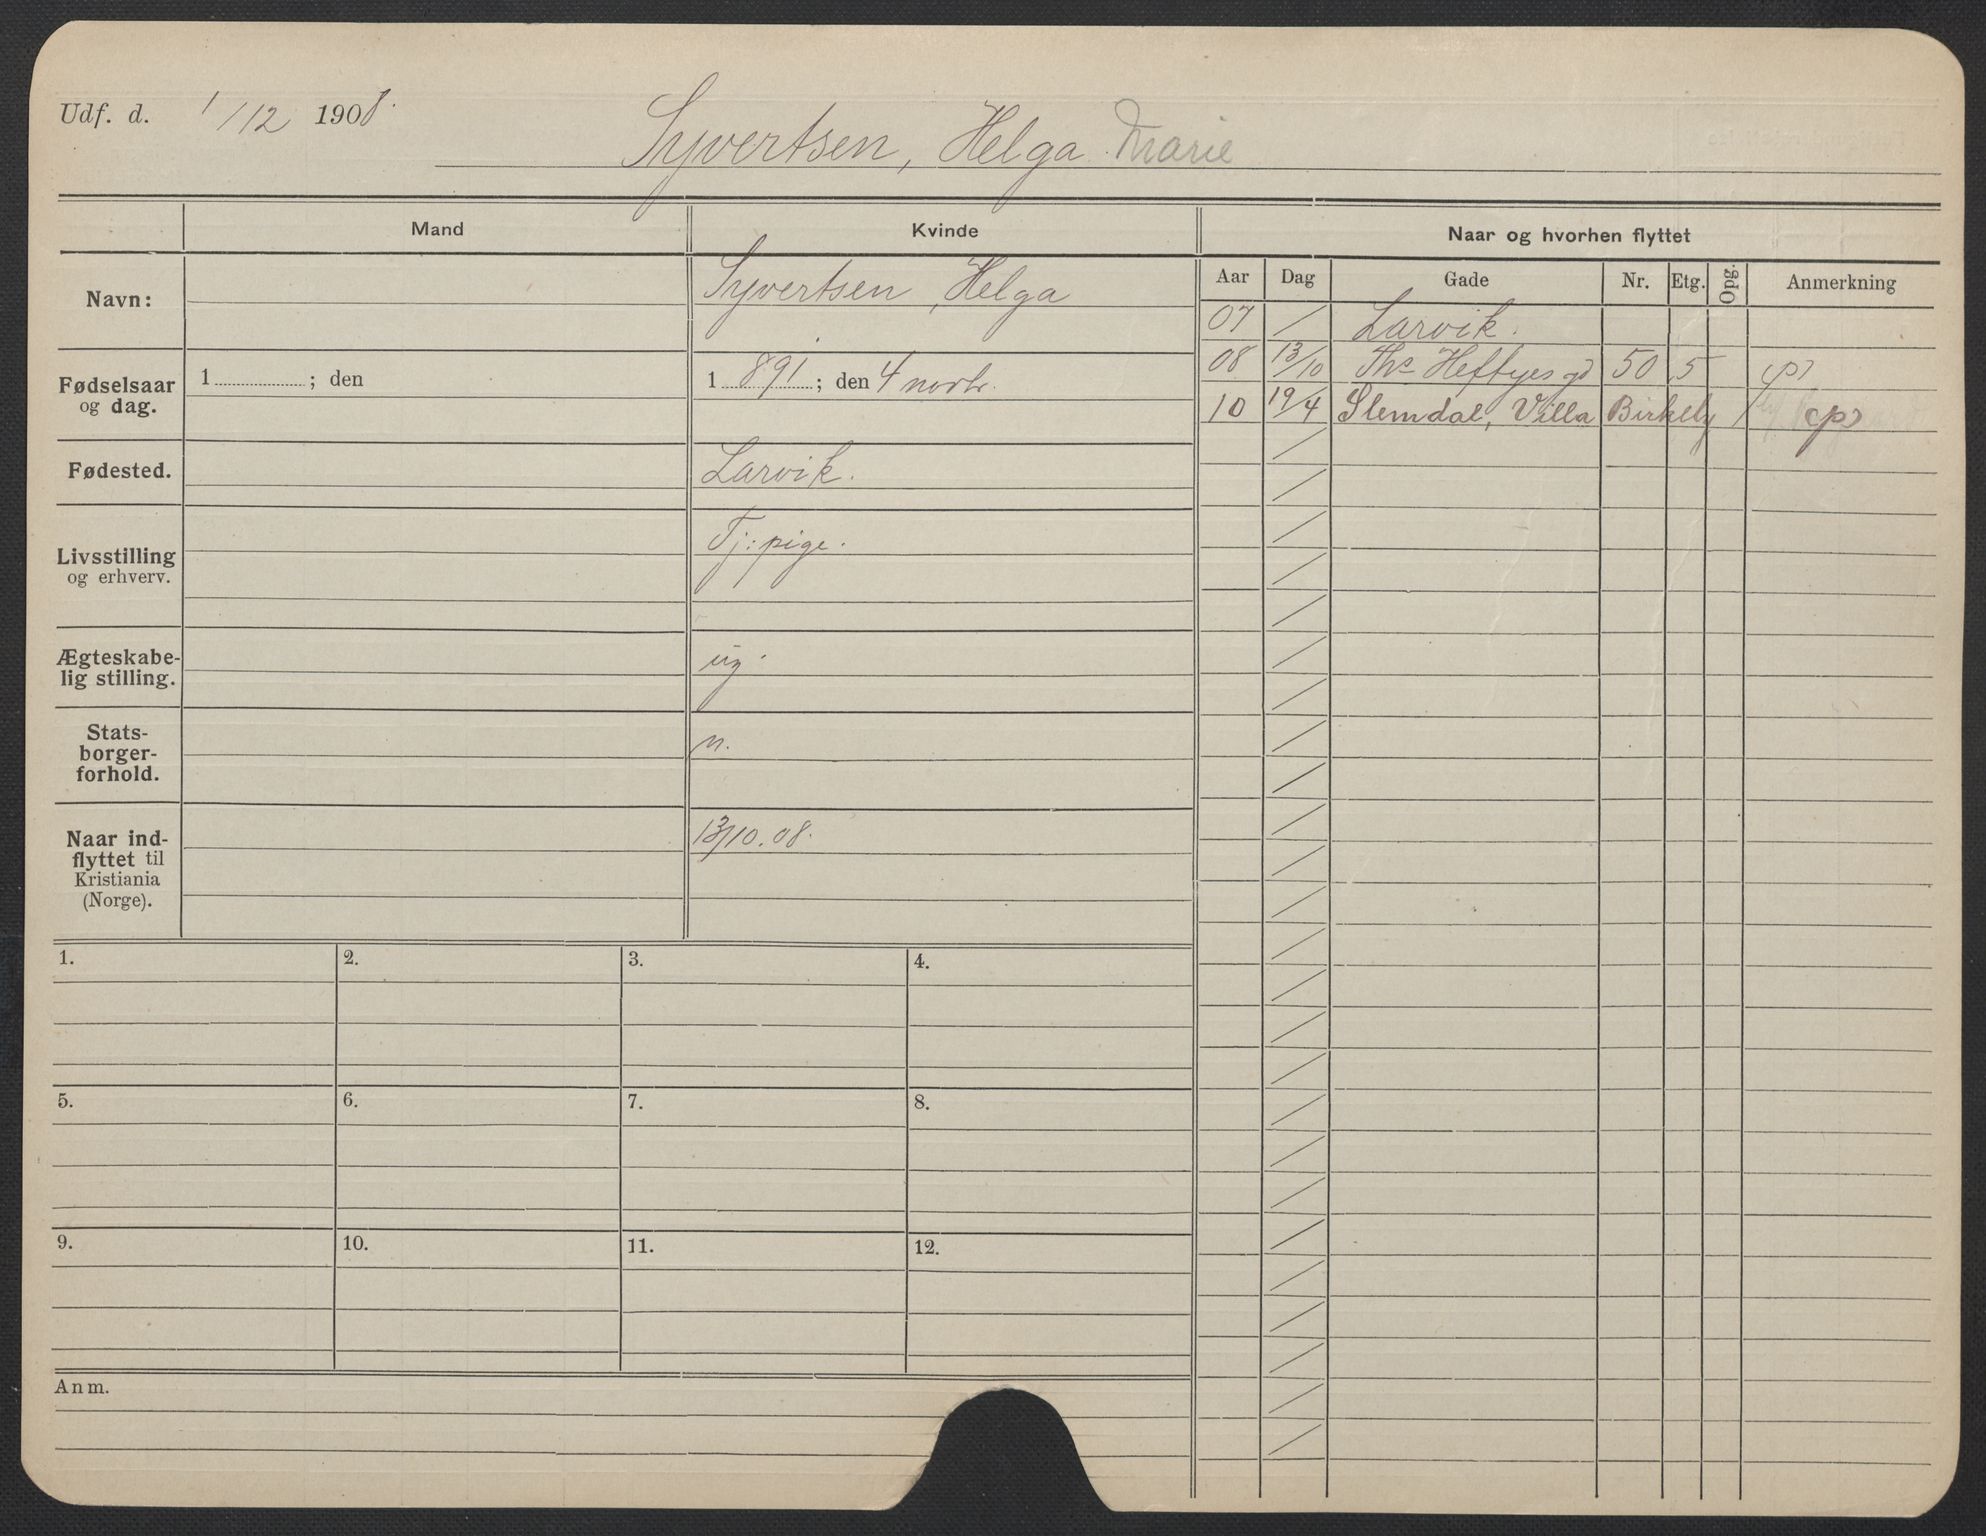 Udf. d. 1/12 1908.
Syvertsen, Helga Marie
Mand
Kvinde
Naar og hvorhen flyttet
Aar Dag Gade Nr. Etg. Opg. Anmerkning
Navn:
Syvertsen, Helga
Fødselsaar
og dag.
1 ; den
1 891 ; den 4 novbr.
Fødested.
Larvik.
Livsstilling
og erhverv.
Tj: pige.
Ægteskabe-
lig stilling.
ug.
Stats-
borger-
forhold.
n.
Naar ind-
flyttet til
Kristiania
(Norge).
13/10.08.
07 / Larvik.
08 13/10 Ths Heftyes gd 50 5 (p)
10 19/4 Slemdal, Villa Birkely (p)
1.
2.
3.
4.
5.
6.
7.
8.
9.
10.
11.
12.
Anm.